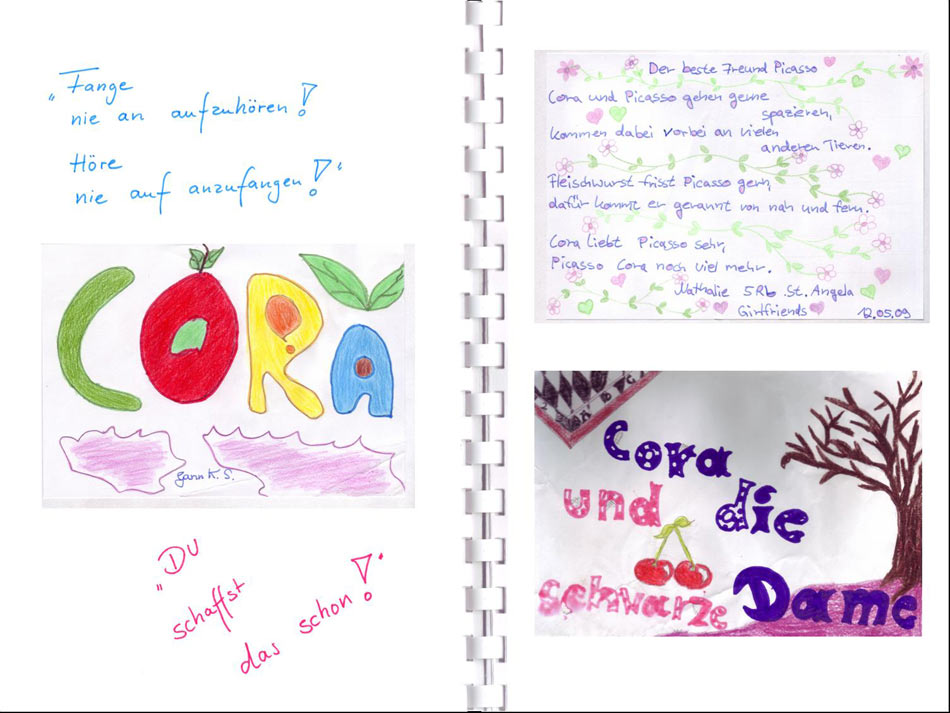 „Fange
nie an aufzuhören!
Höre
nie auf anzufangen!“
CORA
K. S.
„Du
schaffst
das schon!“
Der beste Freund Picasso
Cora und Picasso gehen gerne
spazieren,
kommen dabei vorbei an vielen
anderen Tieren.
Fleischwurst frisst Picasso gern,
dafür kommt er gerannt von nah und fern.
Cora liebt Picasso sehr,
Picasso Cora noch viel mehr.
Nathalie 5Rb St. Angela
Girlfriends
12.05.09
Cora
und die
schwarze Dame